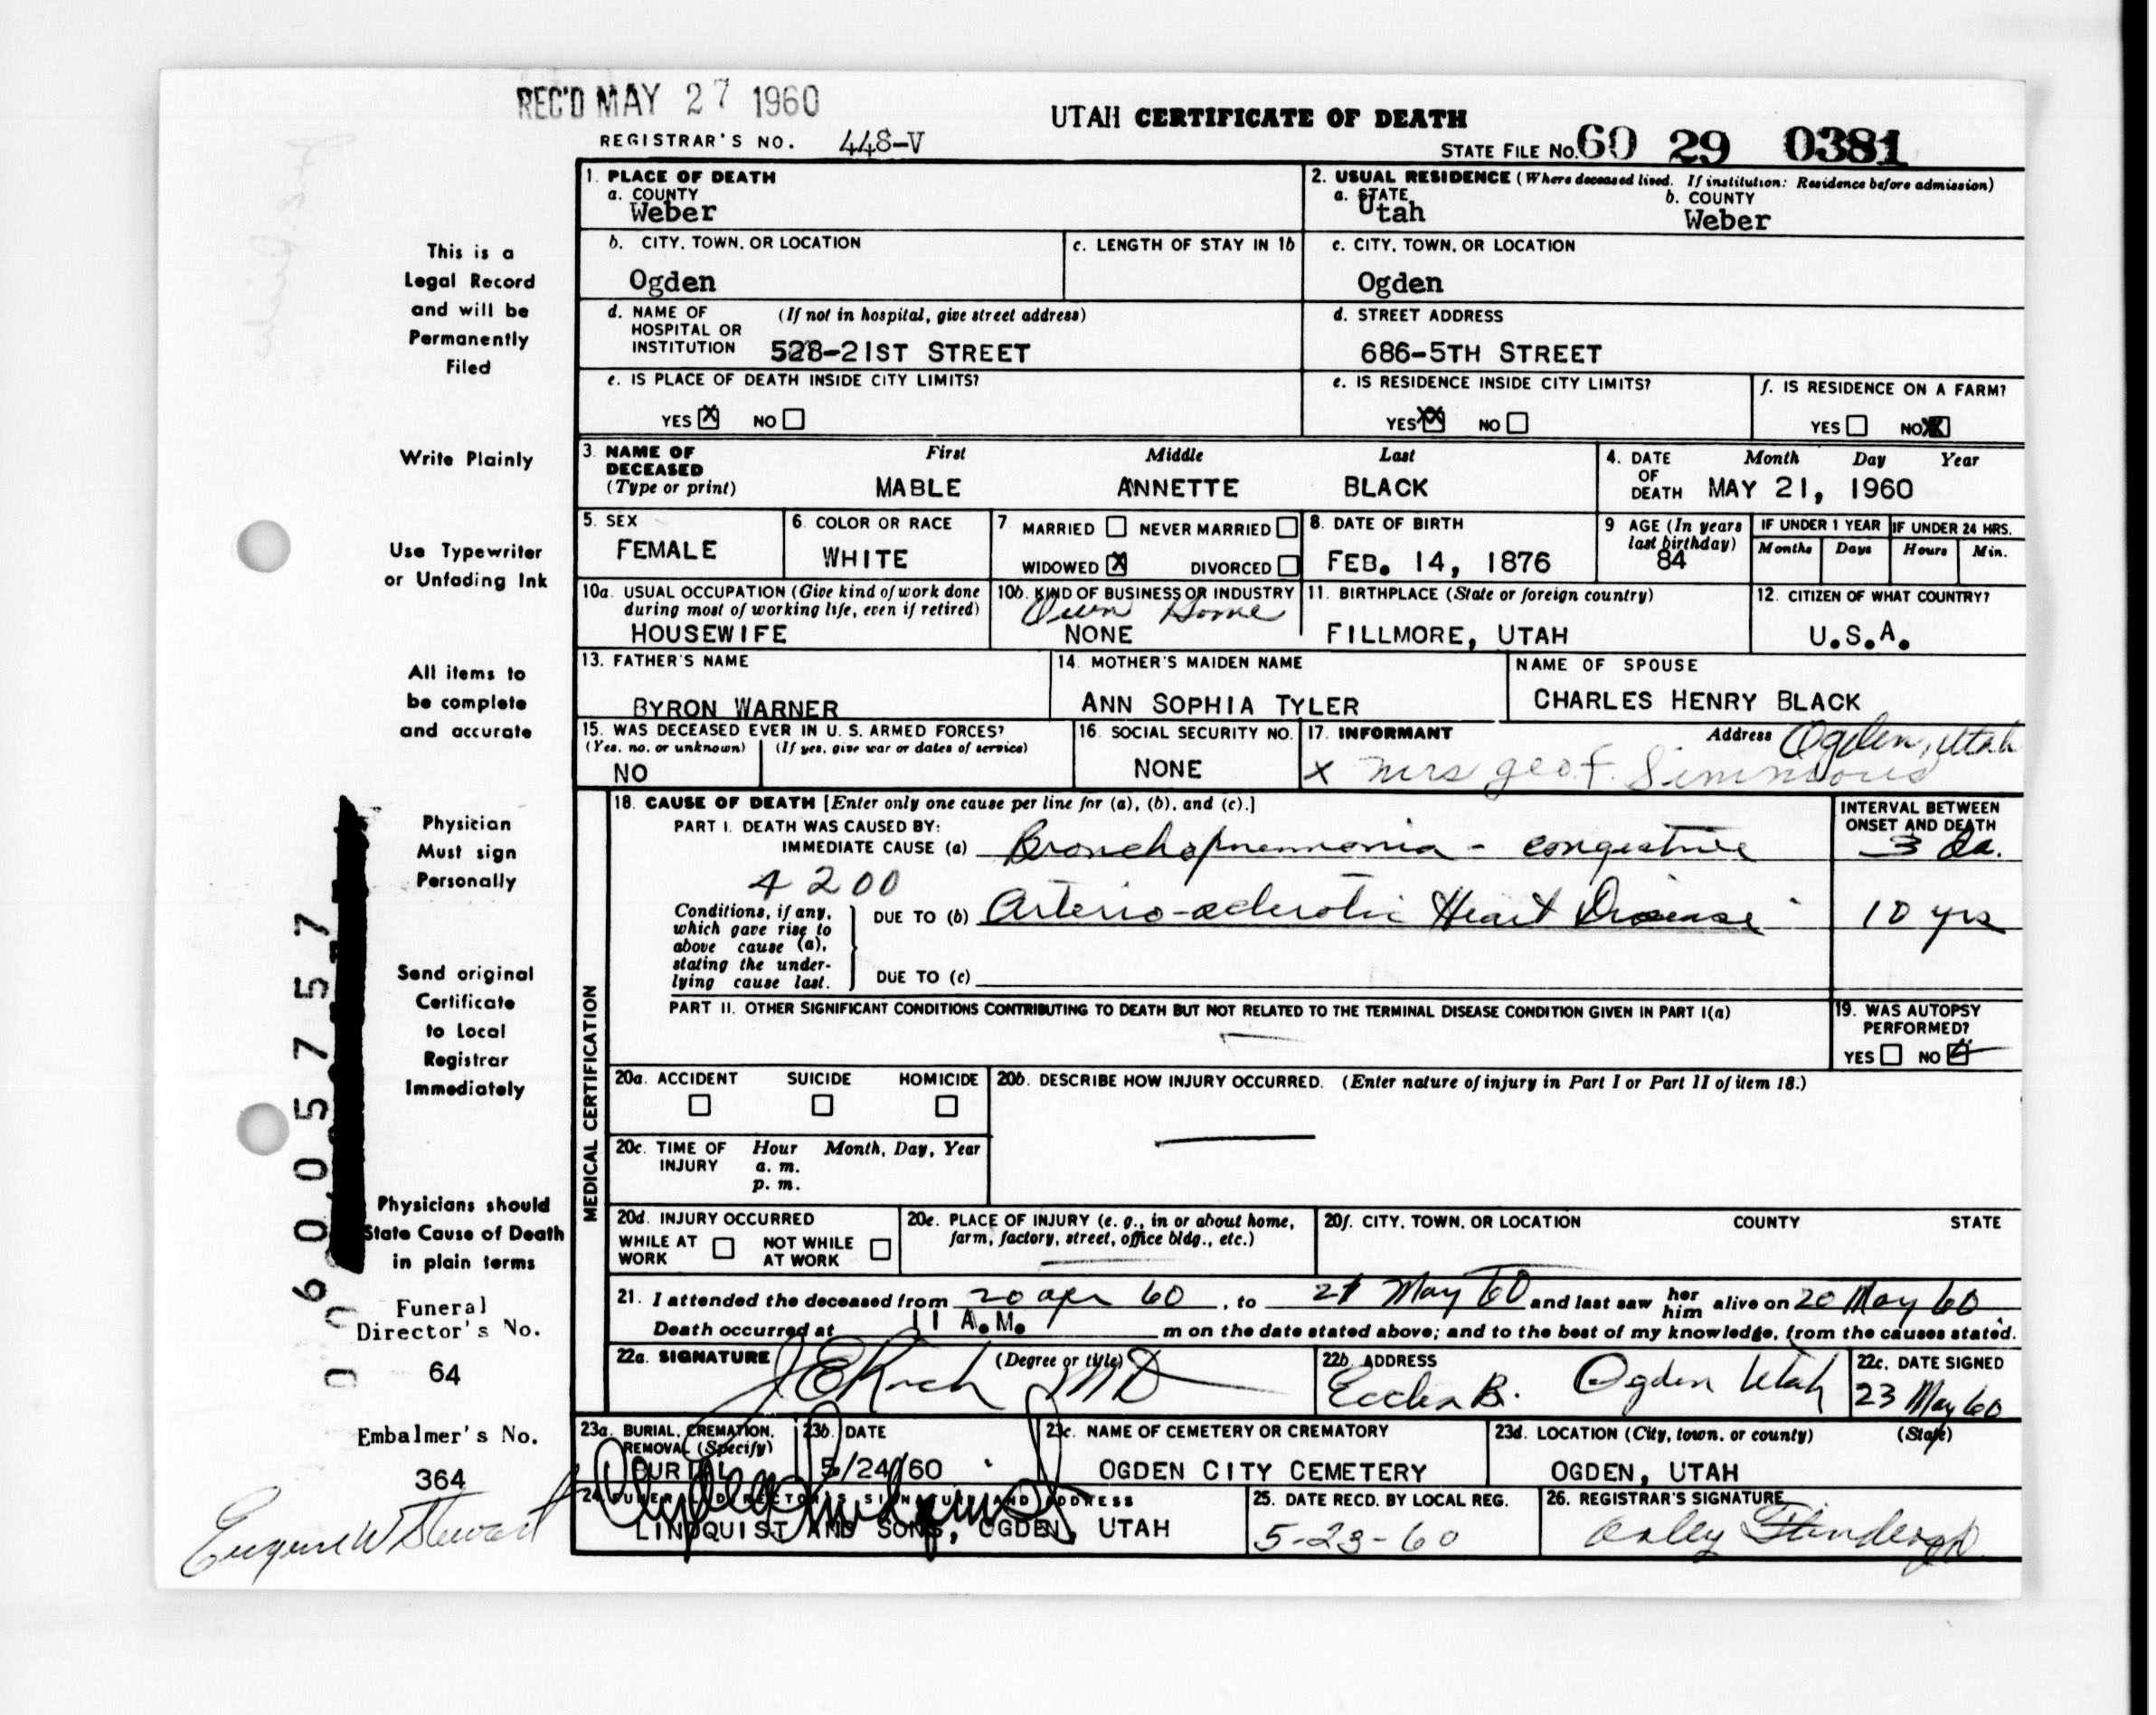 REC'D MAY 27 1960
UTAH CERTIFICATE OF DEATH
REGISTRAR'S NO. 448-V
STATE FILE NO. 60 29 0381
1. PLACE OF DEATH
a. COUNTY
Weber
2. USUAL RESIDENCE (Where deceased lived. If institution: Residence before admission)
a. STATE b. COUNTY
Utah Weber
b. CITY, TOWN, OR LOCATION c. LENGTH OF STAY IN 1b
Ogden
c. CITY, TOWN, OR LOCATION
Ogden
d. NAME OF HOSPITAL OR INSTITUTION (If not in hospital, give street address)
528-21ST STREET
d. STREET ADDRESS
686-5TH STREET
e. IS PLACE OF DEATH INSIDE CITY LIMITS?
YES X NO
e. IS RESIDENCE INSIDE CITY LIMITS?
YES XX NO
f. IS RESIDENCE ON A FARM?
YES NO XX
3. NAME OF DECEASED (Type or print) First Middle Last
MABLE ANNETTE BLACK
4. DATE OF DEATH Month Day Year
MAY 21, 1960
5. SEX
FEMALE
6. COLOR OR RACE
WHITE
7 MARRIED NEVER MARRIED
WIDOWED X DIVORCED
8. DATE OF BIRTH
FEB. 14, 1876
9 AGE (In years last birthday)
84
IF UNDER 1 YEAR IF UNDER 24 HRS.
Months Days Hours Min.
10a. USUAL OCCUPATION (Give kind of work done
during most of working life, even if retired)
HOUSEWIFE
10b. KIND OF BUSINESS OR INDUSTRY
Own Home
NONE
11. BIRTHPLACE (State or foreign country)
FILLMORE, UTAH
12. CITIZEN OF WHAT COUNTRY?
U.S.A.
13. FATHER'S NAME
BYRON WARNER
14. MOTHER'S MAIDEN NAME
ANN SOPHIA TYLER
NAME OF SPOUSE
CHARLES HENRY BLACK
15. WAS DECEASED EVER IN U. S. ARMED FORCES?
(Yes, no, or unknown) (If yes, give war or dates of service)
NO
16. SOCIAL SECURITY NO.
NONE
17. INFORMANT Address Ogden, Utah
x Mrs Geo F. Simmons
MEDICAL CERTIFICATION
18. CAUSE OF DEATH [Enter only one cause per line for (a), (b), and (c).]
INTERVAL BETWEEN
ONSET AND DEATH
PART I. DEATH WAS CAUSED BY:
IMMEDIATE CAUSE (a) Bronchopneumonia - congestive 3 da.
4200
Conditions, if any,
which gave rise to
above cause (a),
stating the under-
lying cause last.
DUE TO (b) Arterio-sclerotic Heart Disease 10 yrs
DUE TO (c)
PART II. OTHER SIGNIFICANT CONDITIONS CONTRIBUTING TO DEATH BUT NOT RELATED TO THE TERMINAL DISEASE CONDITION GIVEN IN PART I(a)
19. WAS AUTOPSY
PERFORMED?
YES NO
20a. ACCIDENT SUICIDE HOMICIDE
20b. DESCRIBE HOW INJURY OCCURRED. (Enter nature of injury in Part I or Part II of item 18.)
20c. TIME OF INJURY Hour Month, Day, Year
a. m.
p. m.
20d. INJURY OCCURRED
WHILE AT WORK NOT WHILE AT WORK
20e. PLACE OF INJURY (e. g., in or about home,
farm, factory, street, office bldg., etc.)
20f. CITY, TOWN, OR LOCATION COUNTY STATE
21. I attended the deceased from 20 apr 60, to 21 May 60 and last saw her him alive on 20 May 60
Death occurred at 11 A.M. m on the date stated above; and to the best of my knowledge, from the causes stated.
22a. SIGNATURE (Degree or title)
MD
22b. ADDRESS
Eccles B. Ogden Utah
22c. DATE SIGNED
23 May 60
23a. BURIAL, CREMATION,
REMOVAL (Specify)
BURIAL
23b. DATE
5/24/60
23c. NAME OF CEMETERY OR CREMATORY
OGDEN CITY CEMETERY
23d. LOCATION (City, town, or county) (State)
OGDEN, UTAH
24. FUNERAL DIRECTOR'S SIGNATURE AND ADDRESS
LINDQUIST AND SONS, OGDEN, UTAH
25. DATE RECD. BY LOCAL REG.
5-23-60
26. REGISTRAR'S SIGNATURE
This is a
Legal Record
and will be
Permanently
Filed
Write Plainly
Use Typewriter
or Unfading Ink
All items to
be complete
and accurate
Physician
Must sign
Personally
Send original
Certificate
to Local
Registrar
Immediately
Physicians should
State Cause of Death
in plain terms
Funeral
Director's No.
64
Embalmer's No.
364
Eugene W Stewart
0060057577